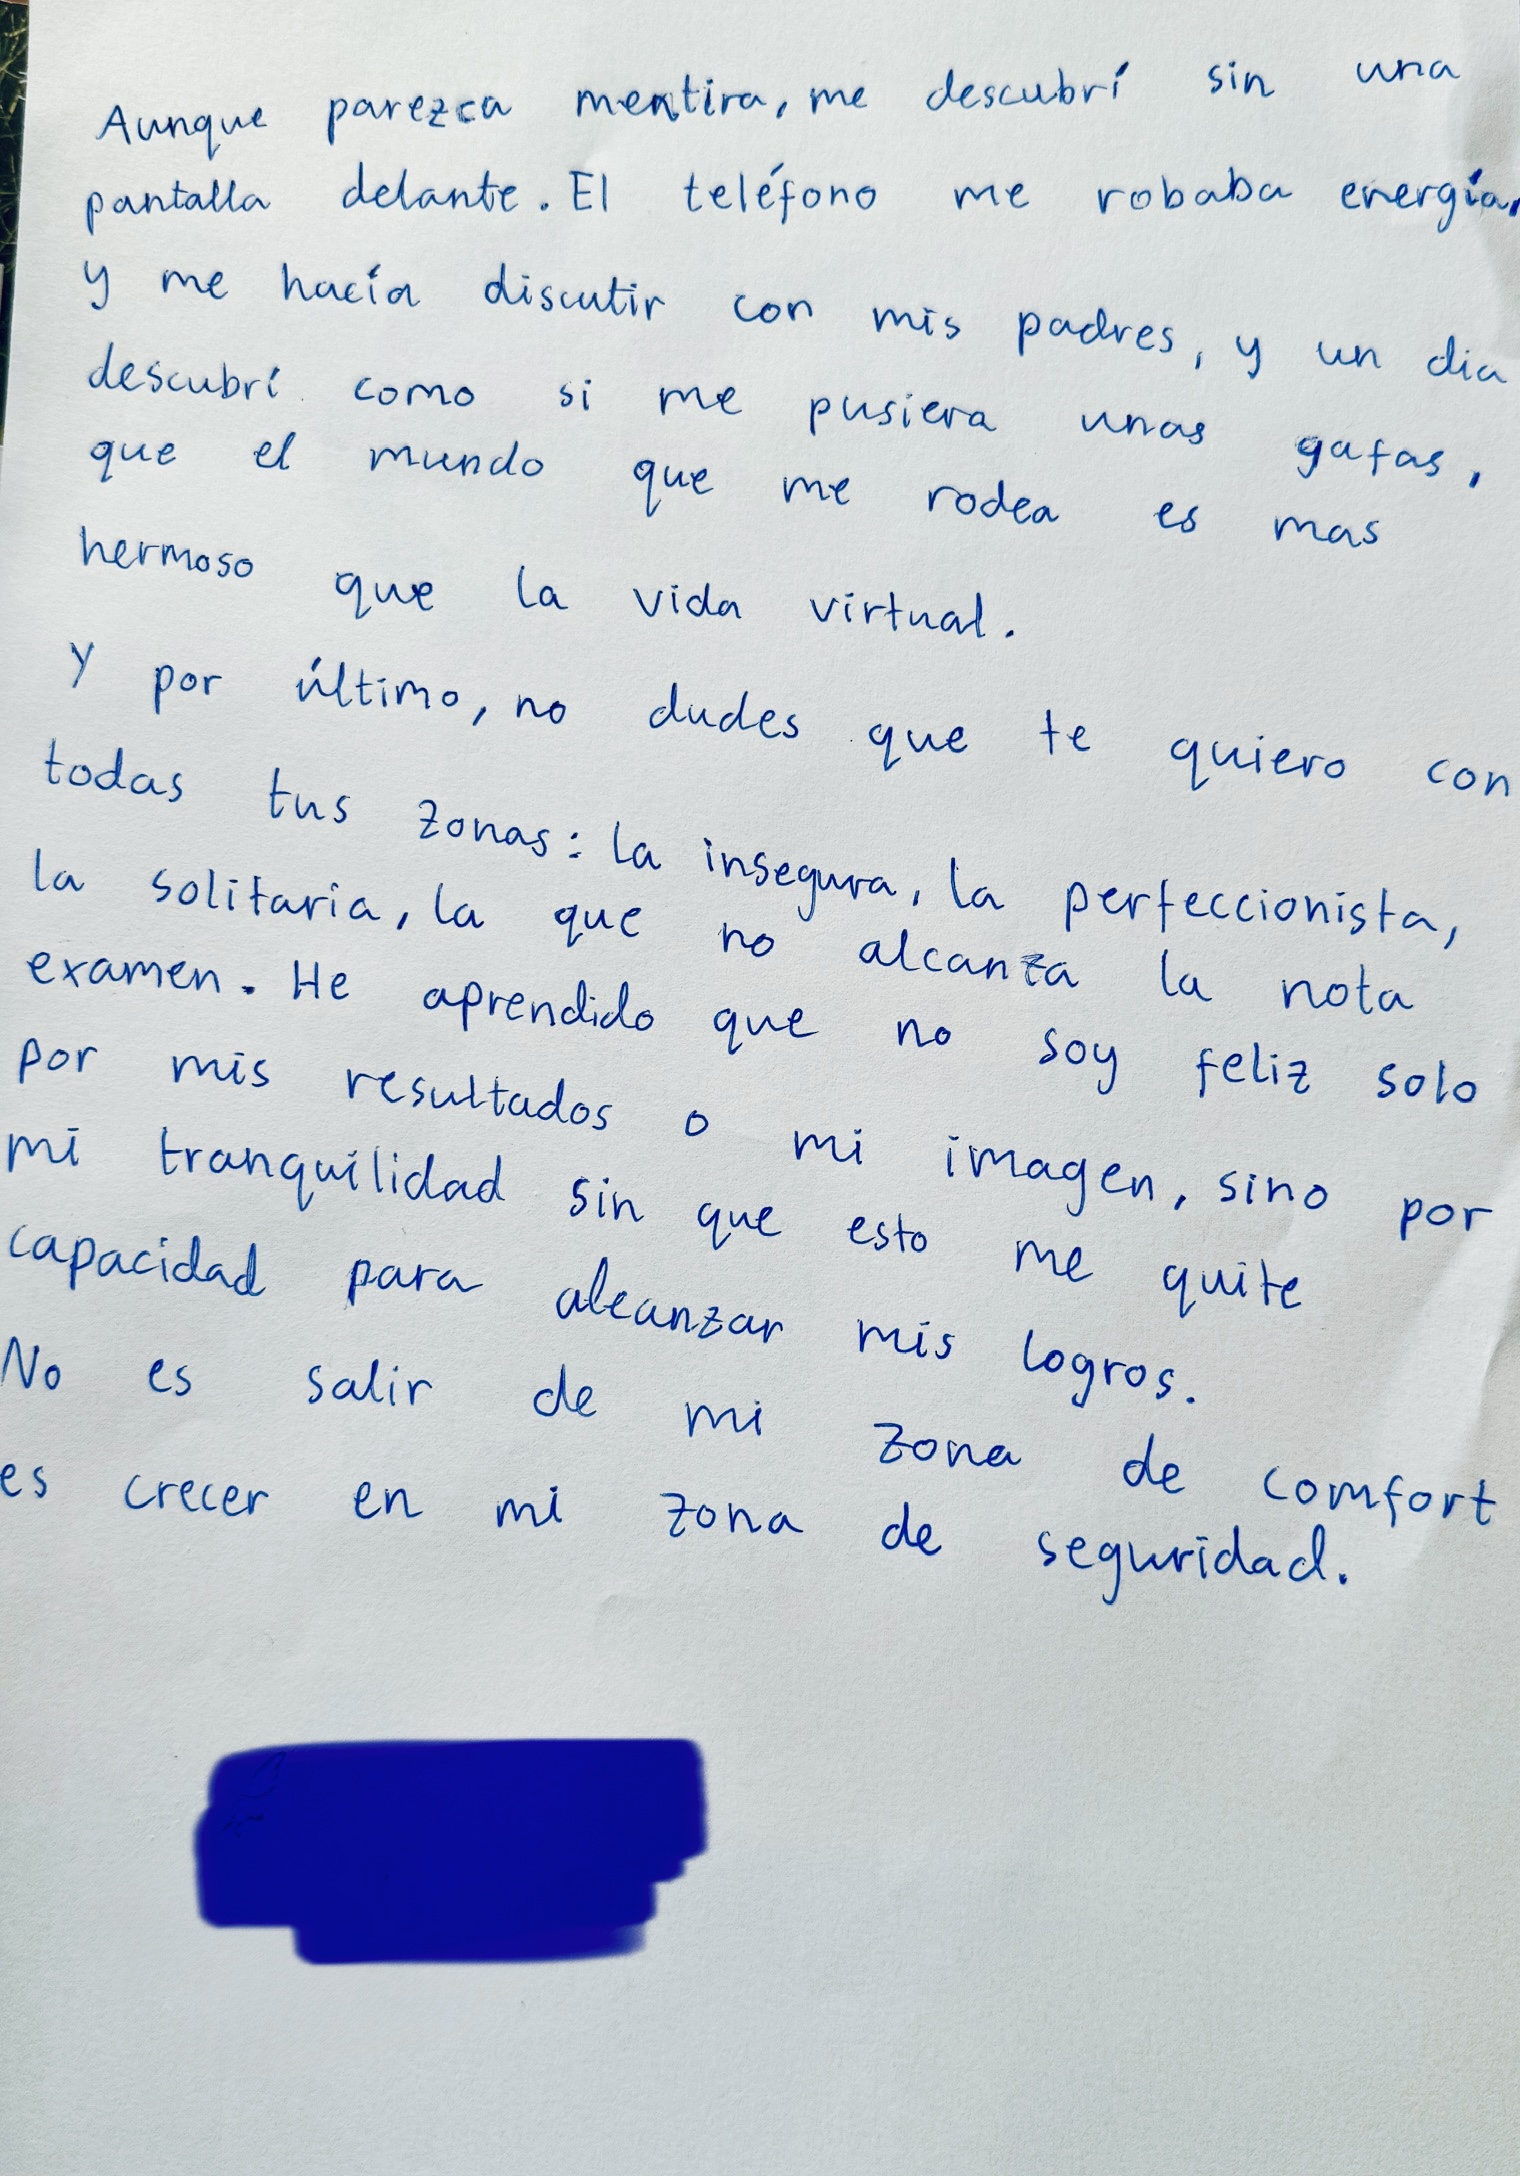 Aunque parezca mentira, me descubrí sin una
pantalla delante. El teléfono me robaba energía,
y me hacía discutir con mis padres, y un dia
descubrí como si me pusiera unas gafas,
que el mundo que me rodea es mas
hermoso que la vida virtual.
Y por último, no dudes que te quiero con
todas tus zonas: la insegura, la perfeccionista,
la solitaria, la que no alcanza la nota
examen. He aprendido que no soy feliz solo
por mis resultados o mi imagen, sino por
mi tranquilidad sin que esto me quite
capacidad para alcanzar mis logros.
No es salir de mi zona de comfort
es crecer en mi zona de seguridad.